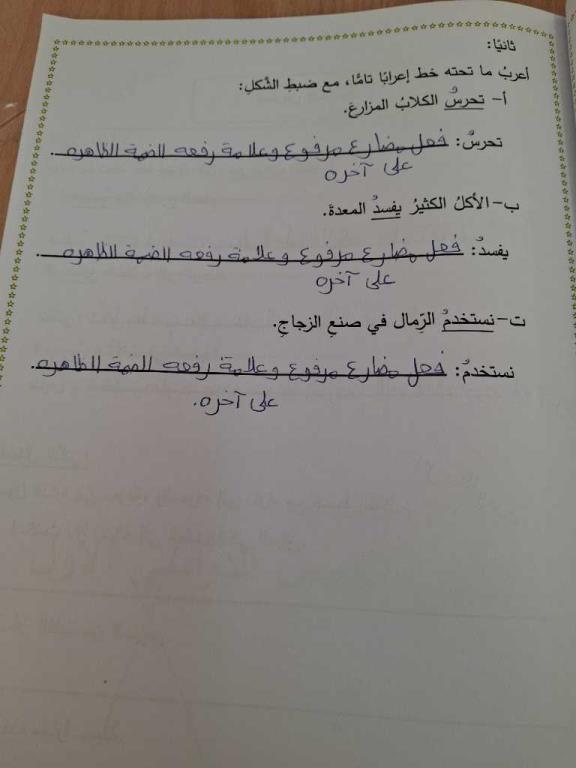 ثانيًا:
أعربُ ما تحته خط إعرابًا تامًّا، مع ضبطِ الشّكلِ:
أ- تحرسُ الكلابُ المزارعَ.
تحرسُ: فعل مضارع مرفوع وعلامة رفعه الضمة الظاهره.
على آخره
ب- الأكلُ الكثيرُ يفسدُ المعدةَ.
يفسدُ: فعل مضارع مرفوع وعلامة رفعه الضمة الظاهره.
على آخره
ت- نستخدمُ الرّمال في صنعِ الزجاجِ.
نستخدمُ: فعل مضارع مرفوع وعلامة رفعه الضمة الظاهره.
على آخره.